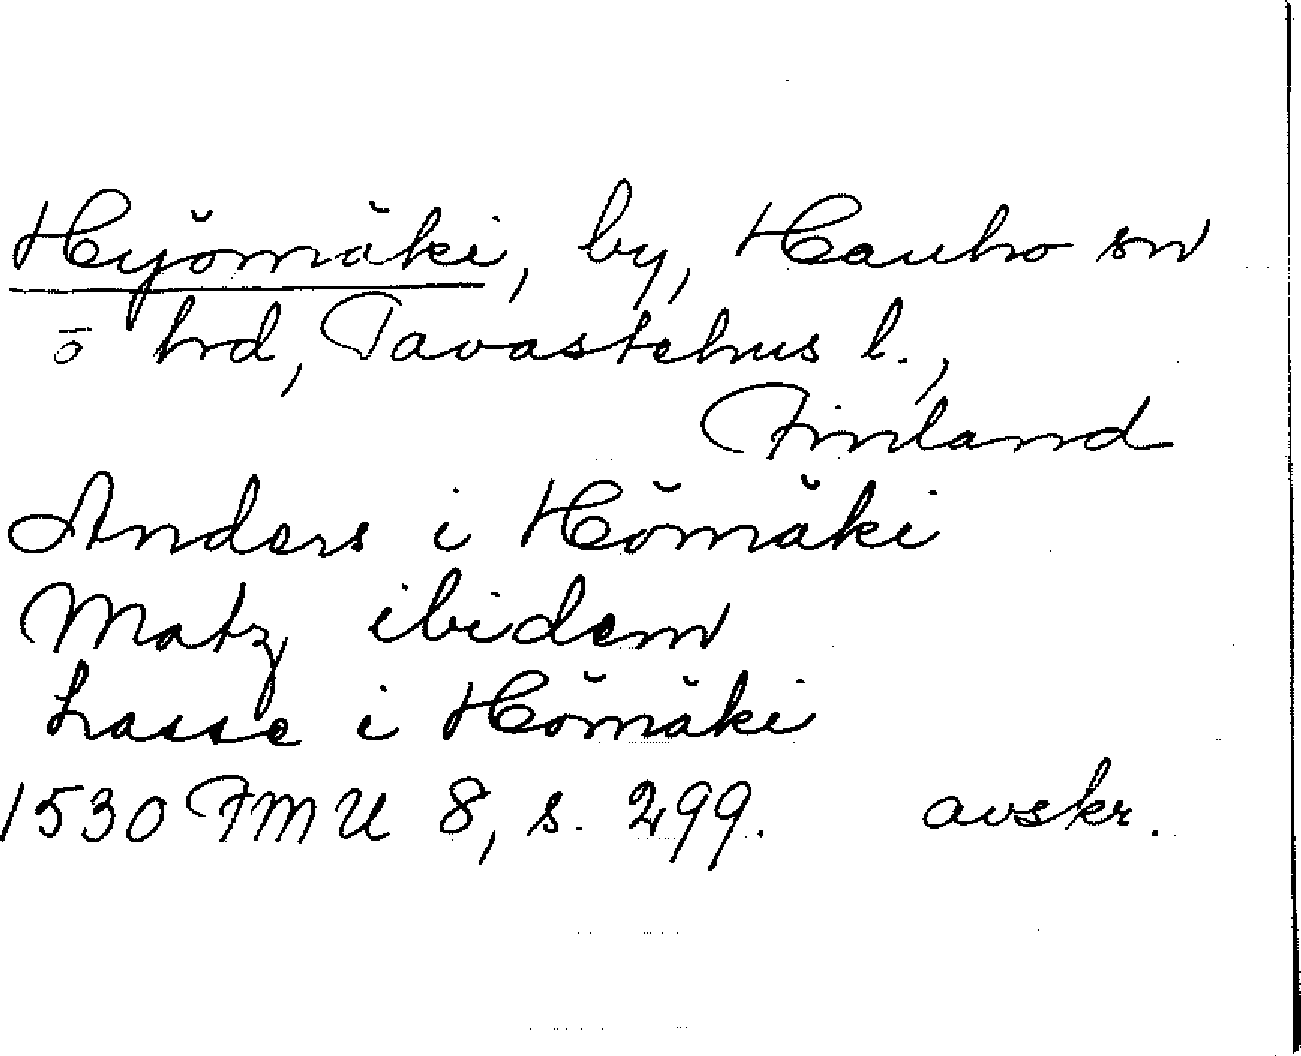 Hyömäki, by, Hauho sn
o hrd, Tavastehus l.,
Finland
Anders i Hömäki
Matz ibidem
Lasse i Hömäki
1530 FMU 8, s. 299. avskr.